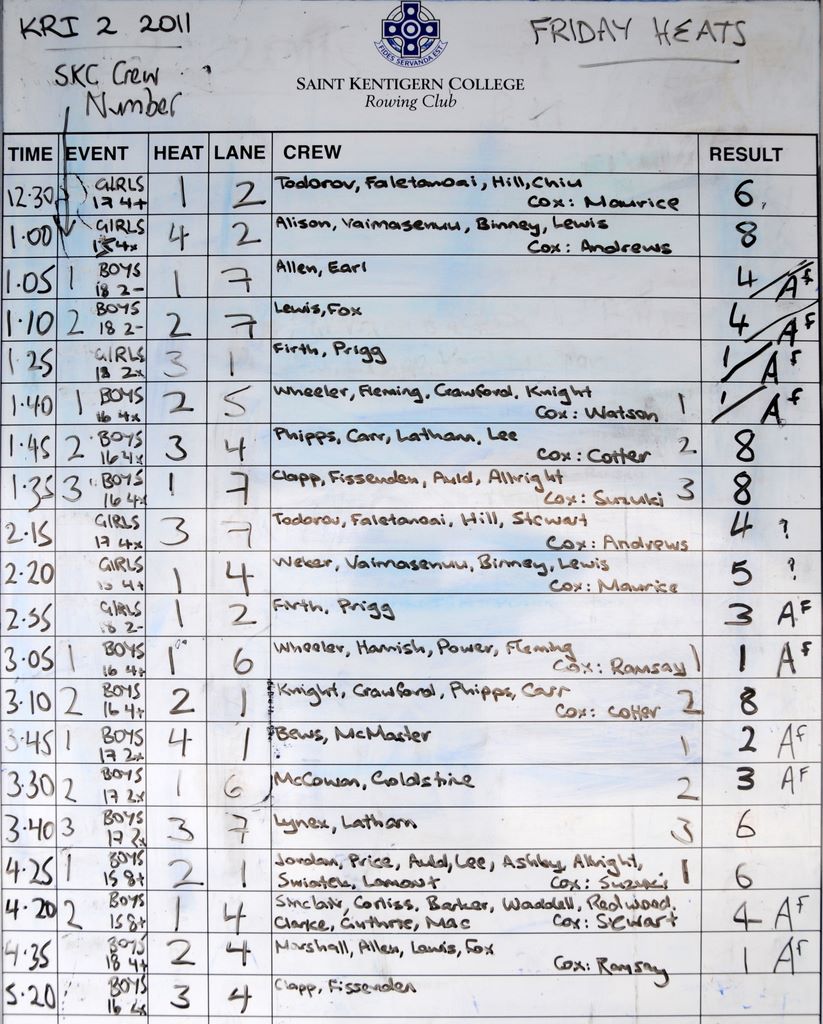 KRI 2 2011
FRIDAY HEATS
SKC Crew
Number
FIDES SERVANDA EST
SAINT KENTIGERN COLLEGE
Rowing Club
TIME EVENT HEAT LANE CREW RESULT
12.30 GIRLS 17 4+ 1 2 Todorov, Faletanoai, Hill, Chiu Cox: Maurice 6
1.00 GIRLS 15 4x 4 2 Alison, Vaimasenuu, Binney, Lewis Cox: Andrews 8
1.05 1 BOYS 18 2- 1 7 Allen, Earl 4 Af
1.10 2 BOYS 18 2- 2 7 Lewis, Fox 4 Af
1.25 GIRLS 18 2x 3 1 Firth, Prigg 1 Af
1.40 1 BOYS 16 4x 2 5 Wheeler, Fleming, Crawford, Knight Cox: Watson 1 1 Af
1.45 2 BOYS 16 4x 3 4 Phipps, Carr, Latham, Lee Cox: Cotter 2 8
1.35 3 BOYS 16 4x 1 7 Clapp, Fissenden, Auld, Allright Cox: Suzuki 3 8
2.15 GIRLS 17 4x 3 7 Todorov, Faletanoai, Hill, Stewart Cox: Andrews 4 ?
2.20 GIRLS 15 4+ 1 4 Weker, Vaimasenuu, Binney, Lewis Cox: Maurice 5 ?
2.55 GIRLS 18 2- 1 2 Firth, Prigg 3 AF
3.05 1 BOYS 16 4+ 1 6 Wheeler, Hamish, Power, Fleming Cox: Ramsay 1 1 Af
3.10 2 BOYS 16 4+ 2 1 Knight, Crawford, Phipps, Carr Cox: Cotter 2 8
3.45 1 BOYS 17 2x 4 1 Bews, McMaster 1 2 Af
3.30 2 BOYS 17 2x 1 6 McCowan, Goldstine 2 3 AF
3.40 3 BOYS 17 2x 3 7 Lynex, Latham 3 6
4.25 1 BOYS 15 8+ 2 1 Jordan, Price, Auld, Lee, Ashby, Allright,
Swiatek, Lamont Cox: Suzuki 1 6
4.20 2 BOYS 15 8+ 1 4 Sinclair, Corliss, Barker, Waddell, Redwood,
Clarke, Guthrie, Mac Cox: Stewart 4 Af
4.35 BOYS 18 4+ 2 4 Marshall, Allen, Lewis, Fox Cox: Ramsay 1 Af
5.20 BOYS 16 2x 3 4 Clapp, Fissenden